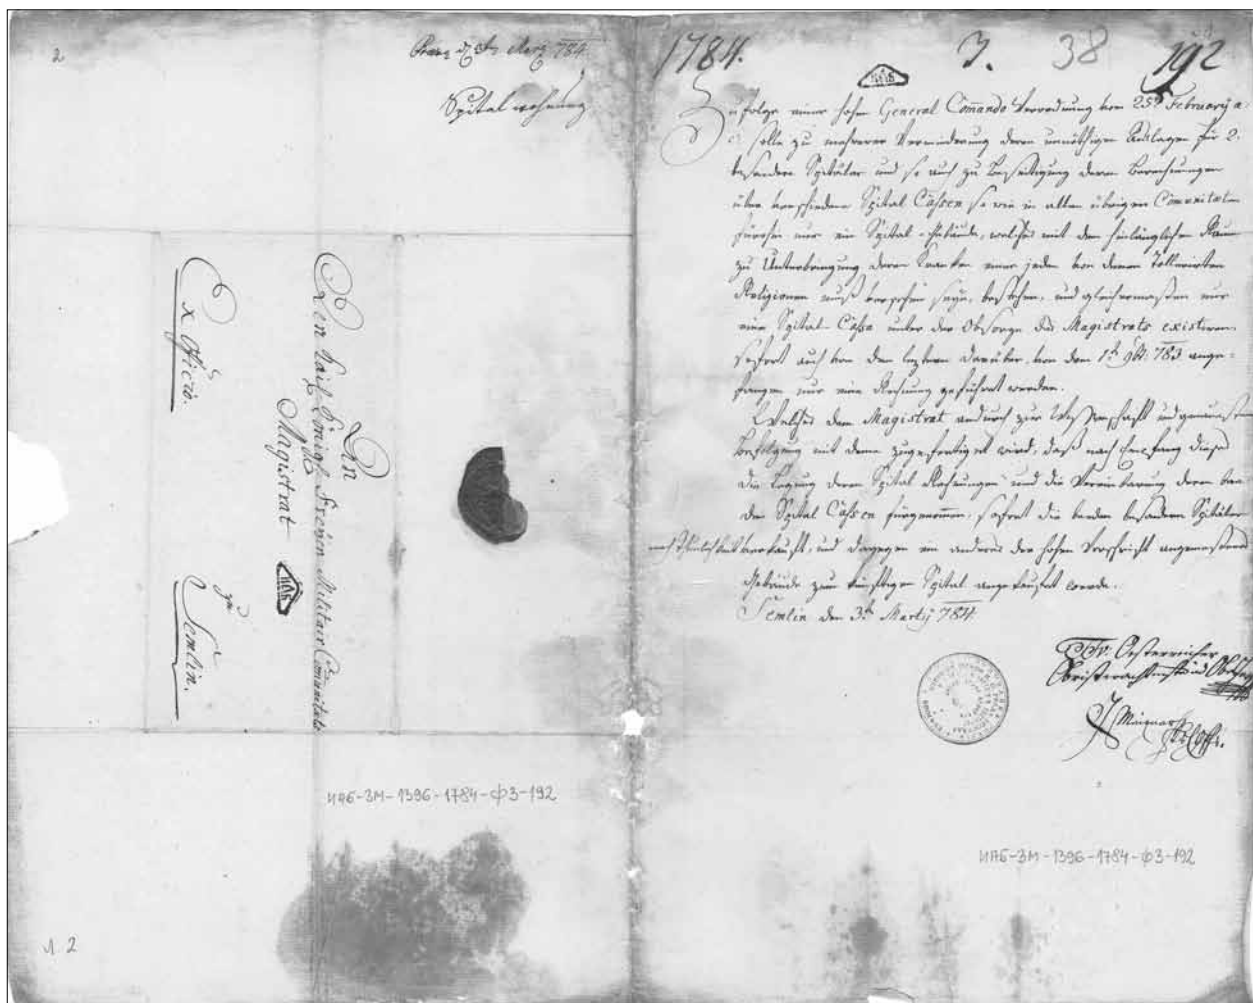 2
Praes. d. 3t. Marz 784.
Spital
An
Den Kaiss. Königl. Freyen Militair Communitaets
Magistrat
zu
Semlin.
Ex Officio.
ИАБ-ЗМ-1396-1784-Ф3-192
л. 2
1784. 3. 38 192
Zufolge einer hohen General Commando Verordnung vom 25t. February a.
c. solle zu mehrerer Verminderung deren unnöthigen Auslagen für 2.
besondere Spitäler und so auch zu Beseitigung deren Berechnungen
über verschiedene Spital Cassen so wie in allen übrigen Communitaten
fürohin nur ein Spital-Gebäude, welches mit dem hinlänglichen Raum
zu Unterbringung deren Kranken einer jeden von denen Tollerirten
Religionen muß versehen seyn, bestehen, und gleichermaßen nur
eine Spital-Cassa unter der Obsorge des Magistrats existiren
sofort auch von dem letztern darüber, von dem 1t. 9br. 783 ange-
fangen nur eine Rechnung geführt werden.
Welches dem Magistrat andurch zur Wissenschaft und genauesten
Befolgung mit deme zugefertiget wird, daß nach Empfang dieses
die Legung deren Spital Rechnungen und die Vereinbarung deren bey-
den Spital Cassen fürgenommen, sofort die beeden besondern Spitäler
verkauft, und dagegen ein anderes der hohen Vorschrift angemessenes
Gebäude zum künftigen Spital angekauft werde.
Semlin den 3t. Martij 784.
Oesterreicher
Obristwachtmeister
ИАБ-ЗМ-1396-1784-Ф3-192